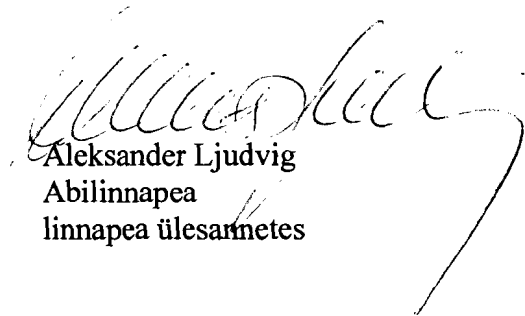 Aleksander Ljudvig
Abilinnapea
linnapea ülesannetes